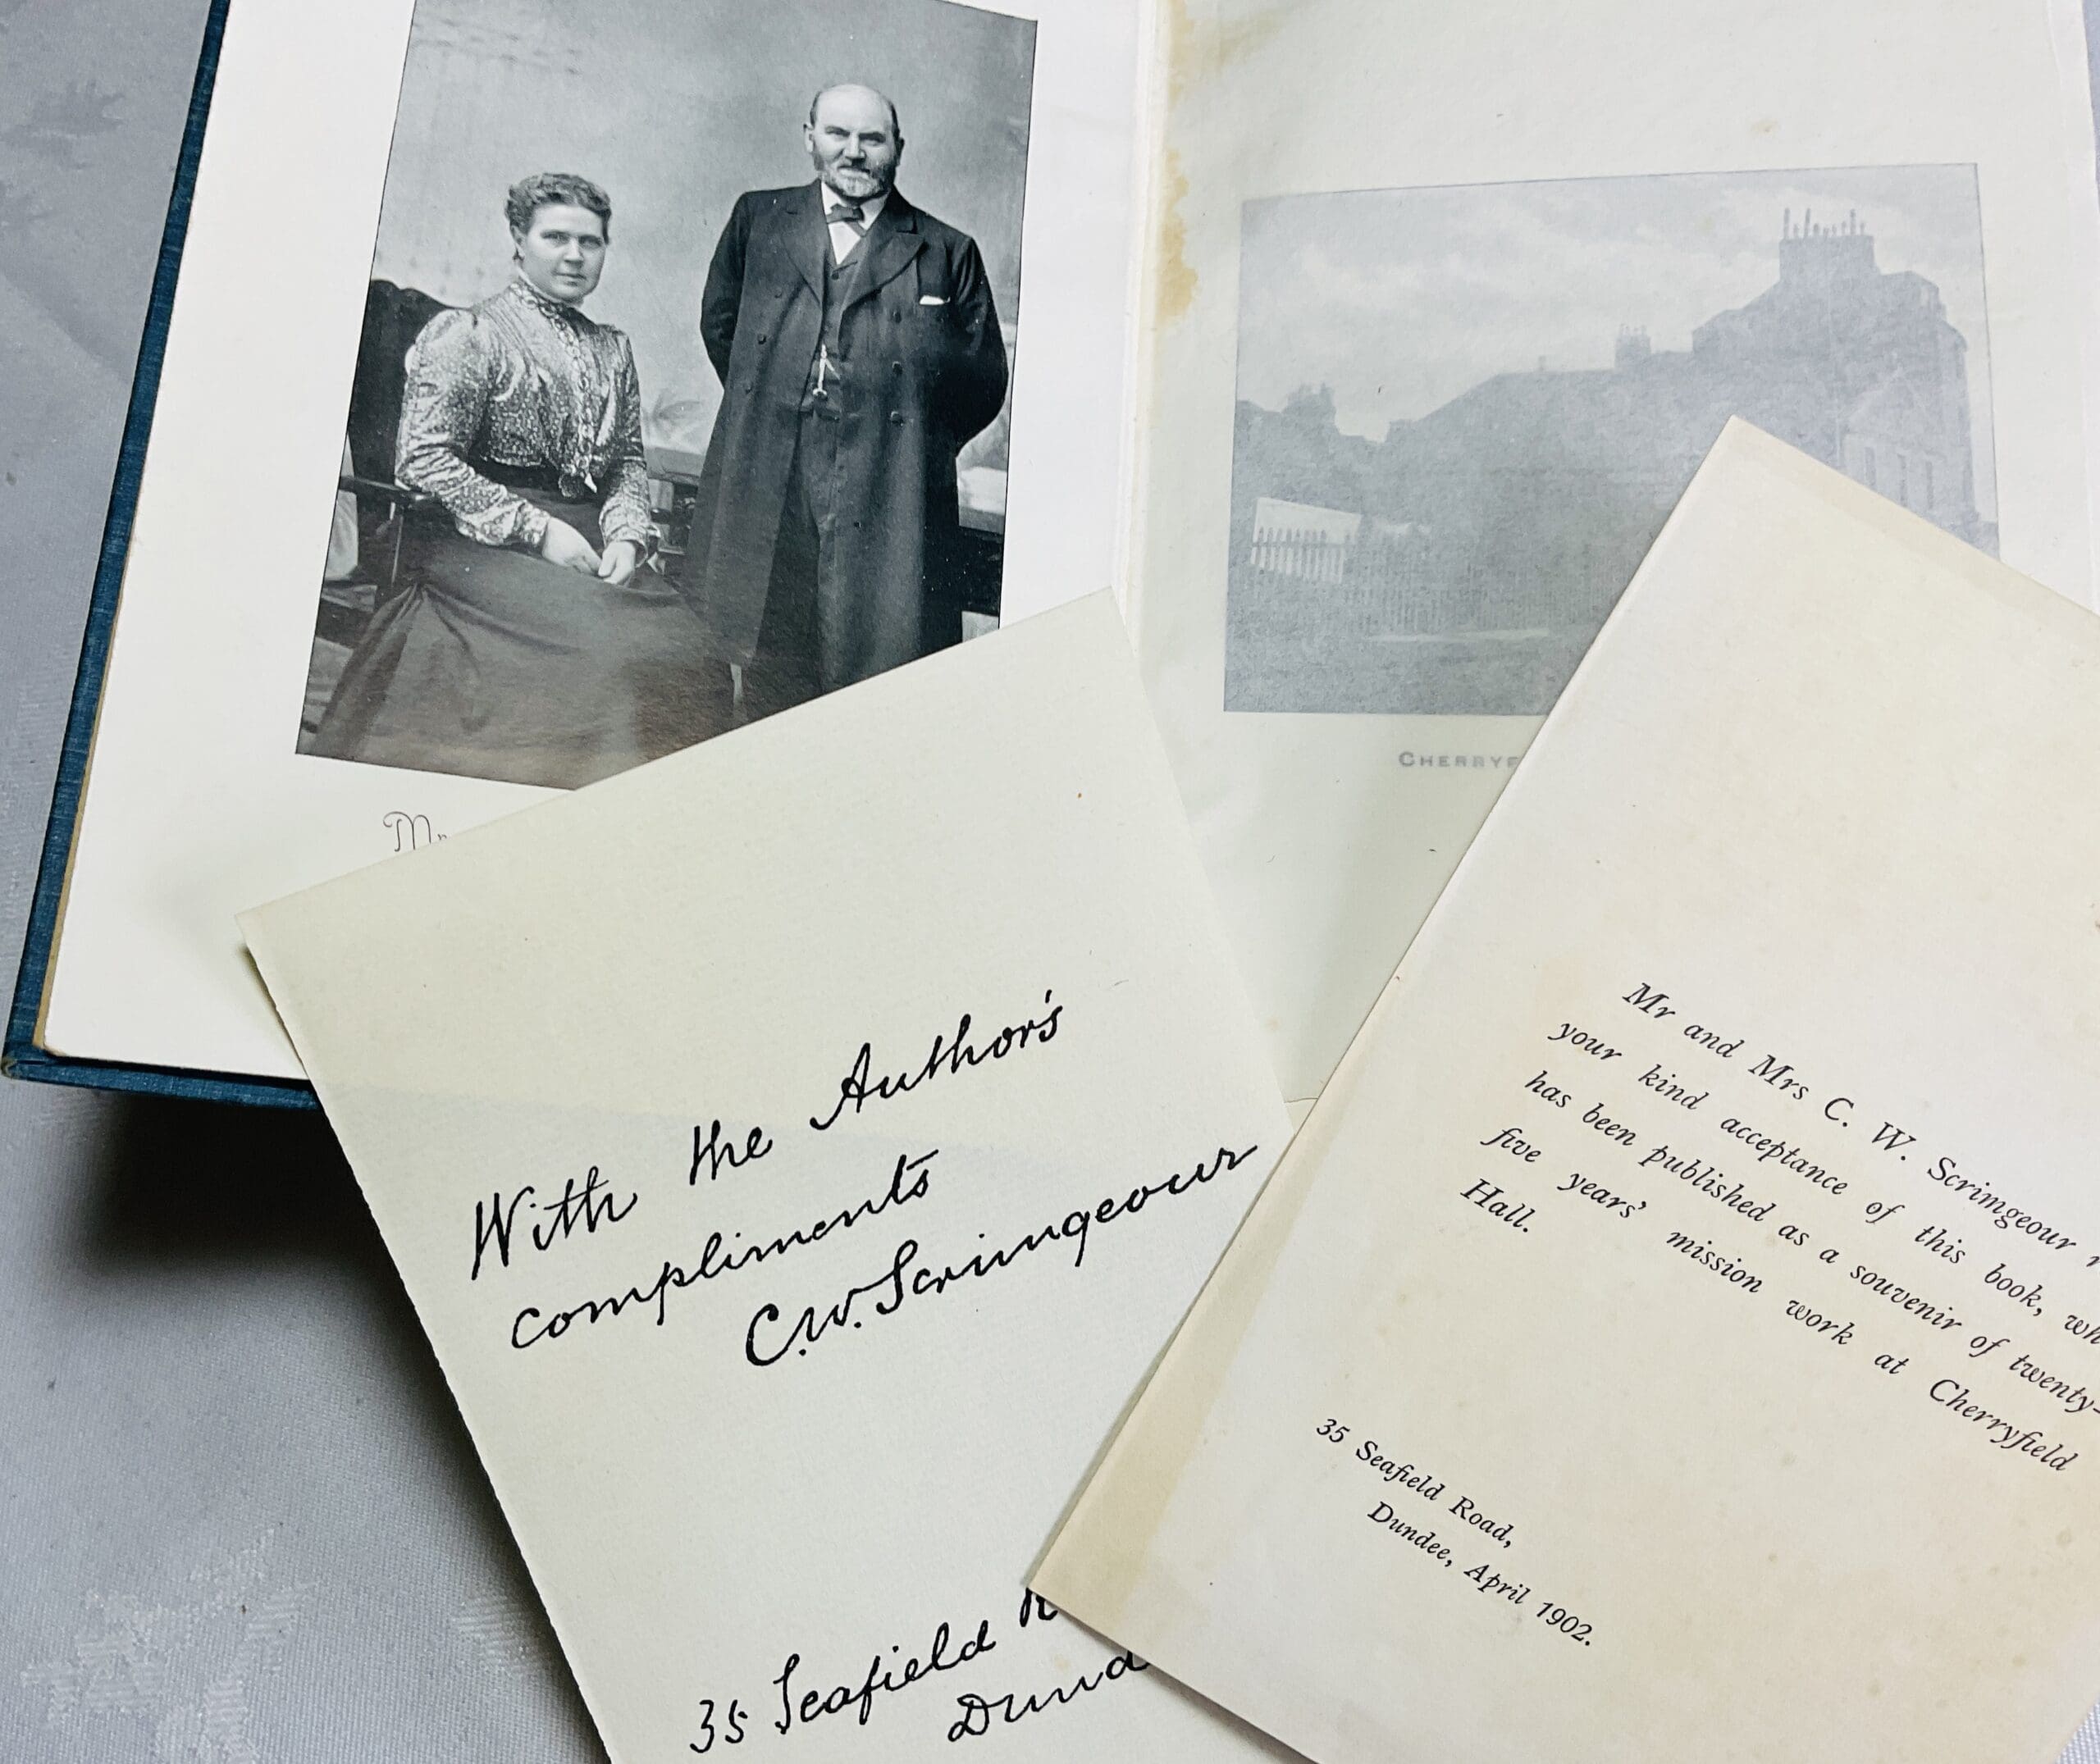 Mr
CHERRYF
With the Author's
compliments
C.W. Scrimgeour
35 Seafield
Dund
Mr and Mrs C. W. Scrimgeour
your kind acceptance of this book, wh
has been published as a souvenir of twenty-
five years' mission work at Cherryfield
Hall.
35 Seafield Road,
Dundee, April 1902.